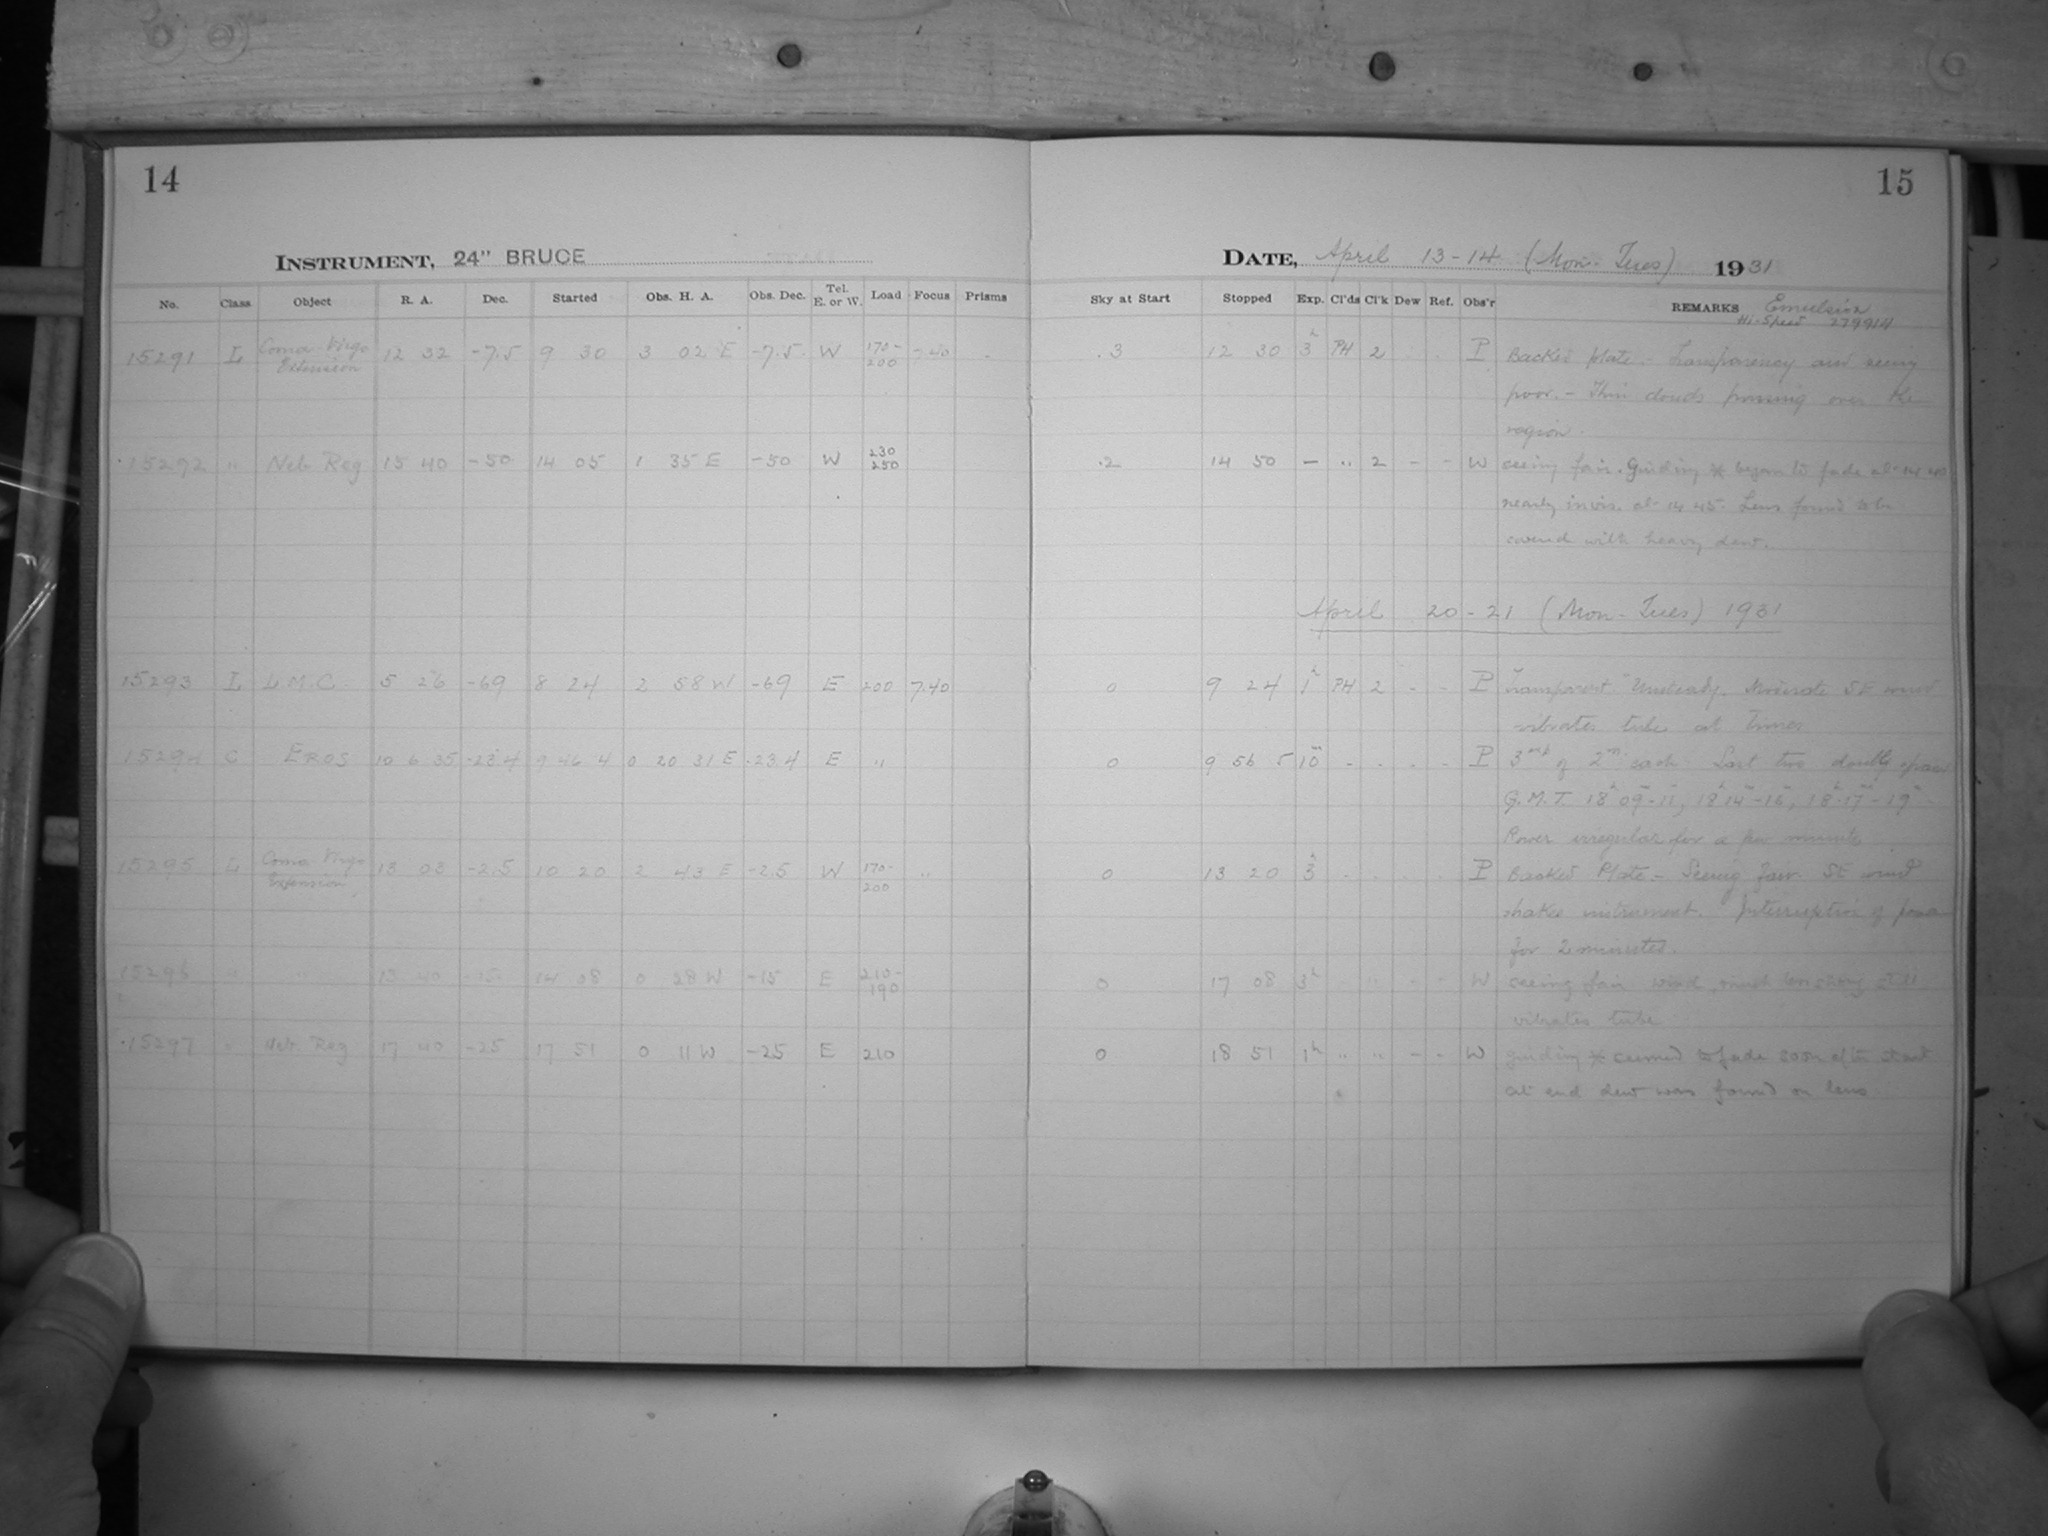 14
15
INSTRUMENT, 24" BRUCE
DATE, April 13-14 (Mon-Tues) 1931
No. Class Object R. A. Dec. Started Obs. H. A. Obs. Dec. Tel. E. or W. Load Focus Prisms Sky at Start Stopped Exp. Cl'ds Cl'k Dew Ref. Obs'r REMARKS Emulsion
Hi-Speed 279914
15291 L Coma-Virgo 12 32 -7.5 9 30 3 02 E -7.5 W 170- 7.40 .3 12 30 3h PH 2 P Backed plate - Transparency and seeing
Extension 200 poor. - Thin clouds passing over the
region.
15292 " Neb. Reg 15 40 -50 14 05 1 35 E -50 W 230 .2 14 50 — " 2 - - W seeing fair. Guiding * began to fade at 14 40
250 nearly invis. at 14 45. Lens found to be
covered with heavy dew.
April 20-21 (Mon-Tues) 1931
15293 L L.M.C. 5 26 -69 8 24 2 58 W -69 E 200 7.40 0 9 24 1h PH 2 - - P Transparent. Unsteady. Moderate SE wind
vibrates tube at times
15294 C EROS 10 6 35 -23.4 9 46 4 0 20 31 E -23.4 E " 0 9 56 5 10m - - - - P 3 exp of 2m each Last two doubly
G.M.T. 18h 09m-11m, 18h 14m-16m, 18h 17m-19m
Power irregular for a few minutes
15295 L Coma-Virgo 13 03 -2.5 10 20 2 43 E -2.5 W 170- " 0 13 20 3h - - - - P Backed Plate - Seeing fair. SE wind
Extension 200 shakes instrument. Interruption of power
for 2 minutes.
15296 " " 13 40 -15 14 08 0 28 W -15 E 210- 0 17 08 3h " " - - W seeing fair wind, much less strong still
190 vibrates tube
15297 " Neb. Reg 17 40 -25 17 51 0 11 W -25 E 210 0 18 51 1h " " - - W guiding * seemed to fade soon after start
at end dew was found on lens